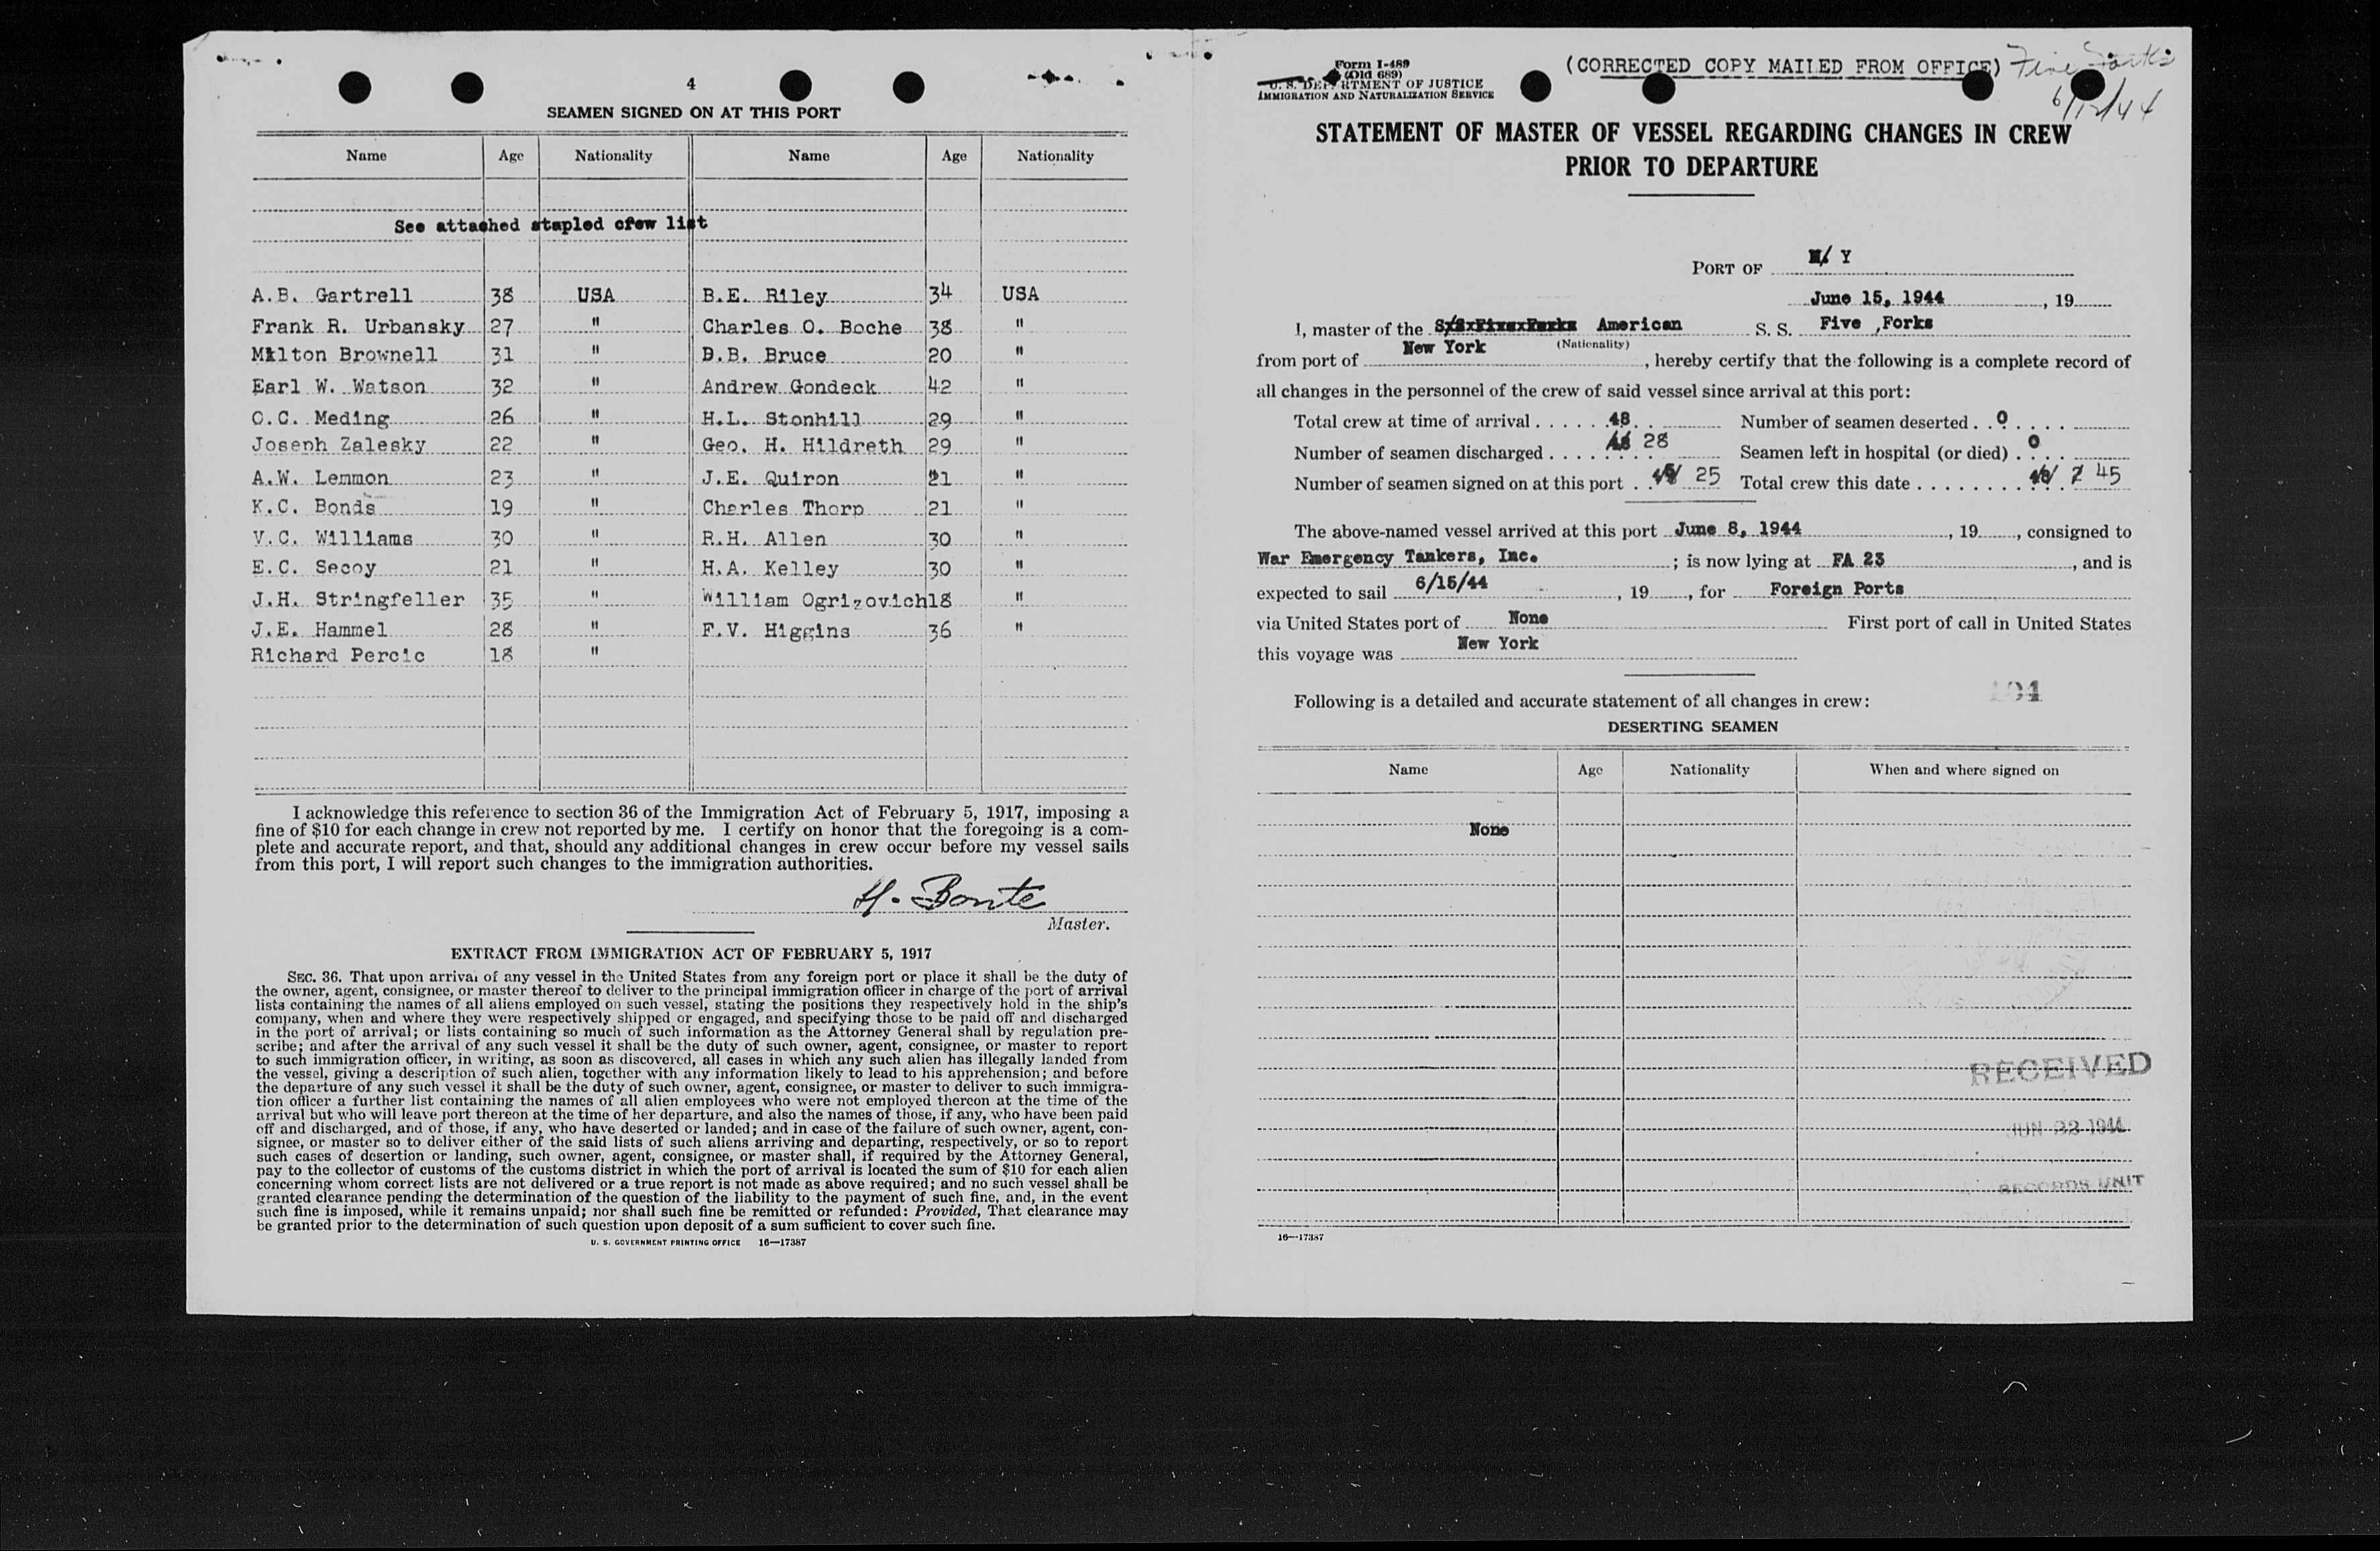 4
SEAMEN SIGNED ON AT THIS PORT
Name Age Nationality Name Age Nationality
See attached stapled crew list
A.B. Gartrell 38 USA B.E. Riley 34 USA
Frank R. Urbansky 27 " Charles O. Boche 38 "
Milton Brownell 31 " D.B. Bruce 20 "
Earl W. Watson 32 " Andrew Gondeck 42 "
O.C. Meding 26 " H.L. Stonhill 29 "
Joseph Zalesky 22 " Geo. H. Hildreth 29 "
A.W. Lemmon 23 " J.E. Quiron 21 "
K.C. Bonds 19 " Charles Thorp 21 "
V.C. Williams 30 " R.H. Allen 30 "
E.C. Secoy 21 " H.A. Kelley 30 "
J.H. Stringfeller 35 " William Ogrizovich 18 "
J.E. Hammel 28 " F.V. Higgins 36 "
Richard Percic 18 "
I acknowledge this reference to section 36 of the Immigration Act of February 5, 1917, imposing a
fine of $10 for each change in crew not reported by me. I certify on honor that the foregoing is a com-
plete and accurate report, and that, should any additional changes in crew occur before my vessel sails
from this port, I will report such changes to the immigration authorities.
H. Bonte
Master.
EXTRACT FROM IMMIGRATION ACT OF FEBRUARY 5, 1917
SEC. 36. That upon arrival of any vessel in the United States from any foreign port or place it shall be the duty of
the owner, agent, consignee, or master thereof to deliver to the principal immigration officer in charge of the port of arrival
lists containing the names of all aliens employed on such vessel, stating the positions they respectively hold in the ship's
company, when and where they were respectively shipped or engaged, and specifying those to be paid off and discharged
in the port of arrival; or lists containing so much of such information as the Attorney General shall by regulation pre-
scribe; and after the arrival of any such vessel it shall be the duty of such owner, agent, consignee, or master to report
to such immigration officer, in writing, as soon as discovered, all cases in which any such alien has illegally landed from
the vessel, giving a description of such alien, together with any information likely to lead to his apprehension; and before
the departure of any such vessel it shall be the duty of such owner, agent, consignee, or master to deliver to such immigra-
tion officer a further list containing the names of all alien employees who were not employed thereon at the time of the
arrival but who will leave port thereon at the time of her departure, and also the names of those, if any, who have been paid
off and discharged, and of those, if any, who have deserted or landed; and in case of the failure of such owner, agent, con-
signee, or master so to deliver either of the said lists of such aliens arriving and departing, respectively, or so to report
such cases of desertion or landing, such owner, agent, consignee, or master shall, if required by the Attorney General,
pay to the collector of customs of the customs district in which the port of arrival is located the sum of $10 for each alien
concerning whom correct lists are not delivered or a true report is not made as above required; and no such vessel shall be
granted clearance pending the determination of the question of the liability to the payment of such fine, and, in the event
such fine is imposed, while it remains unpaid; nor shall such fine be remitted or refunded: Provided, That clearance may
be granted prior to the determination of such question upon deposit of a sum sufficient to cover such fine.
U. S. GOVERNMENT PRINTING OFFICE 16—17387
Form I-489
(Old 689)
U. S. DEPARTMENT OF JUSTICE
IMMIGRATION AND NATURALIZATION SERVICE
(CORRECTED COPY MAILED FROM OFFICE) Five Forks
6/12/44
STATEMENT OF MASTER OF VESSEL REGARDING CHANGES IN CREW
PRIOR TO DEPARTURE
PORT OF N. Y
June 15, 1944, 19
I, master of the American S. S. Five Forks
(Nationality)
from port of New York, hereby certify that the following is a complete record of
all changes in the personnel of the crew of said vessel since arrival at this port:
Total crew at time of arrival 48 Number of seamen deserted 0
Number of seamen discharged 28 Seamen left in hospital (or died) 0
Number of seamen signed on at this port 25 Total crew this date 45
The above-named vessel arrived at this port June 8, 1944, 19, consigned to
War Emergency Tankers, Inc.; is now lying at FA 23, and is
expected to sail 6/15/44, 19, for Foreign Ports
via United States port of None First port of call in United States
this voyage was New York
Following is a detailed and accurate statement of all changes in crew:
DESERTING SEAMEN
Name Age Nationality When and where signed on
None
RECEIVED
JUN 23 1944
RECORDS UNIT
16—17387